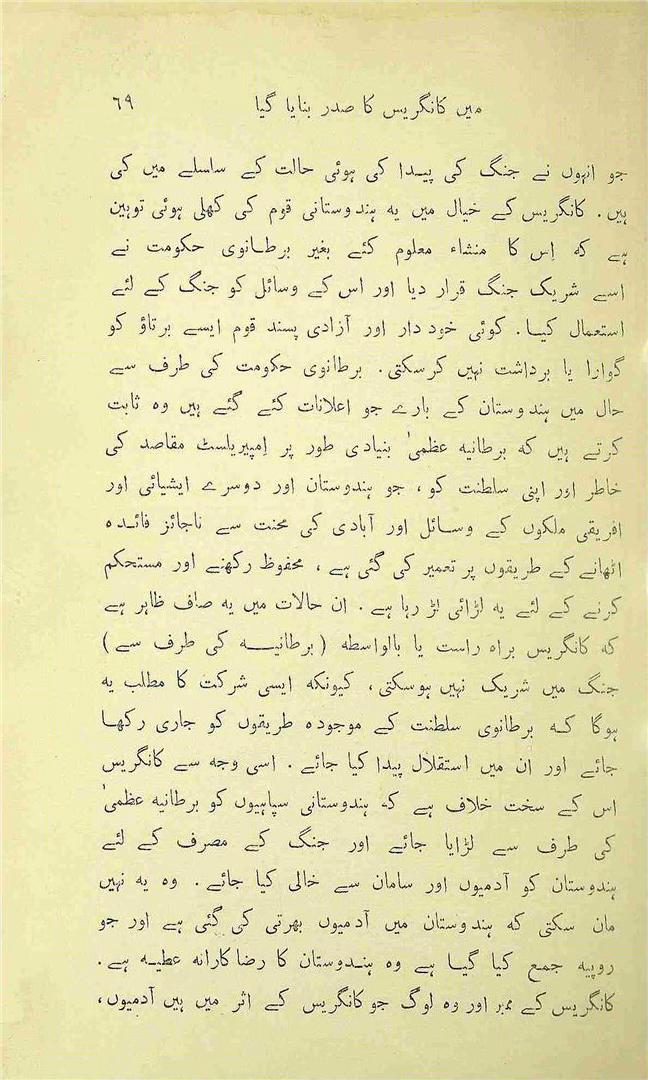 میں کانگریس کا صدر بنایا گیا ٦٩
جو انہوں نے جنگ کی پیدا کی ہوئی حالت کے سلسلے میں کی
ہیں. کانگریس کے خیال میں یہ ہندوستانی قوم کی کھلی ہوئی توہین
ہے کہ اِس کا منشاء معلوم کئے بغیر برطانوی حکومت نے
اسے شریک جنگ قرار دیا اور اس کے وسائل کو جنگ کے لئے
استعمال کیا. کوئی خود دار اور آزادی پسند قوم ایسے برتاؤ کو
گوارا یا برداشت نہیں کرسکتی. برطانوی حکومت کی طرف سے
حال میں ہندوستان کے بارے جو اعلانات کئے گئے ہیں وہ ثابت
کرتے ہیں کہ برطانیہ عظمیٰ بنیادی طور پر اِمپیریلسٹ مقاصد کی
خاطر اور اپنی سلطنت کو، جو ہندوستان اور دوسرے ایشیائی اور
افریقی ملکوں کے وسائل اور آبادی کی محنت سے ناجائز فائدہ
اٹھانے کے طریقوں پر تعمیر کی گئی ہے، محفوظ رکھنے اور مستحکم
کرنے کے لئے یہ لڑائی لڑ رہا ہے. ان حالات میں یہ صاف ظاہر ہے
کہ کانگریس براہ راست یا بالواسطہ (برطانیہ کی طرف سے)
جنگ میں شریک نہیں ہوسکتی، کیونکہ ایسی شرکت کا مطلب یہ
ہوگا کہ برطانوی سلطنت کے موجودہ طریقوں کو جاری رکھا
جائے اور ان میں استقلال پیدا کیا جائے. اسی وجہ سے کانگریس
اس کے سخت خلاف ہے کہ ہندوستانی سپاہیوں کو برطانیہ عظمیٰ
کی طرف سے لڑایا جائے اور جنگ کے مصرف کے لئے
ہندوستان کو آدمیوں اور سامان سے خالی کیا جائے. وہ یہ نہیں
مان سکتی کہ ہندوستان میں آدمیوں بھرتی کی گئی ہے اور جو
روپیہ جمع کیا گیا ہے وہ ہندوستان کا رضاکارانہ عطیہ ہے.
کانگریس کے ممبر اور وہ لوگ جو کانگریس کے اثر میں ہیں آدمیوں،